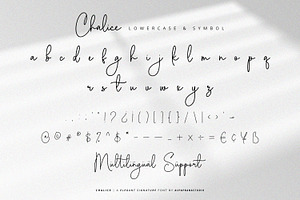 Chalice LOWERCASE & SYMBOL
a b c d e f g h i j k l m n o p q
r s t u v w x y z
! ? ¿ i ( ) [ ] { } / \ | < >
@ # $ % ^ * - – — + × ÷ = € ¢ ¥
Multilingual Support
CHALICE | A ELEGANT SIGNATURE FONT BY